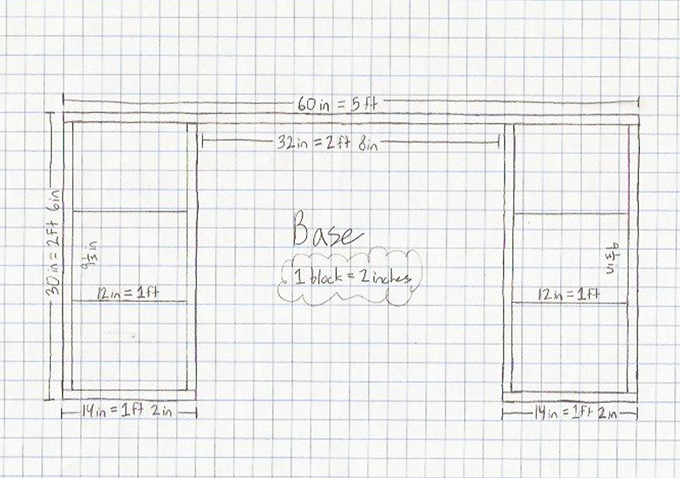 60in = 5ft
32in = 2ft 8in
30in = 2ft 6in
Base
1 block = 2 inches
9⅓ in
9⅓ in
12in = 1ft
12in = 1ft
14in = 1ft 2in
14in = 1ft 2in